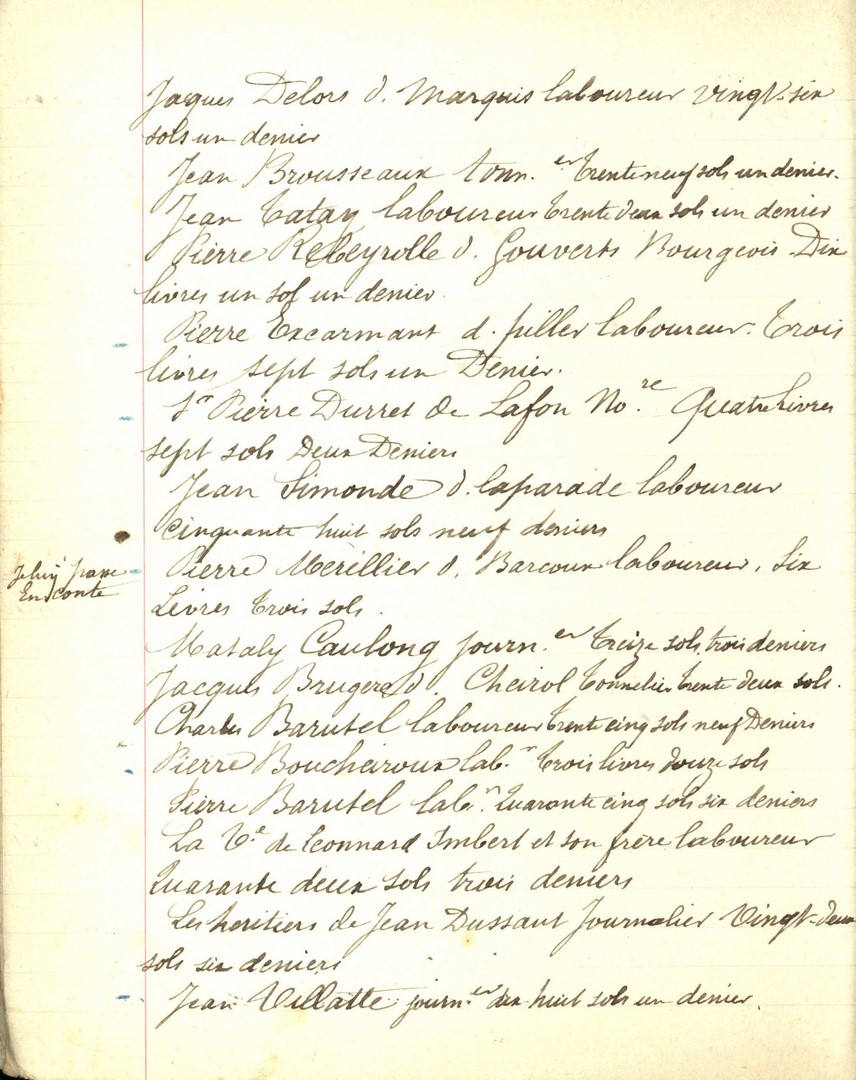 Jaques Delors d. Marquis laboureur vingt-six
sols un denier
Jean Brousseaux tonn.er trente neuf sols un denier.
Jean Catay laboureur trente deux sols un denier
Pierre Rebeyrolle d. Gouverts Bourgeois. Dix
livres un sol un denier.
Pierre Excarmant d. fuller laboureur. Trois
livres sept sols un Denier.
Sr Pierre Durret de Lafon No.re Quatre livres
sept sols Deux Deniers
Jean Simonde d. laparade laboureur
cinquante huit sols neuf deniers
Pierre Merillier d. Barcoux laboureur. Six
Livres trois sols.
passe
En conte
Mataly Caulong journ.er treize sols trois deniers
Jacques Brugere d. Cheirol tonnelier trente deux sols.
Charles Barutel laboureur trente cinq sols neuf Deniers
Pierre Boucheiroux lab.r trois livres douze sols
Pierre Barutel lab.r Quarante cinq sols six deniers
La Ve de Leonnard Imbert et son frère laboureur
Quarante deux sols trois deniers
Les heritiers de Jean Dussaut Journalier Vingt-deux
sols six deniers
Jean Villatte journ.er dix huit sols un denier.